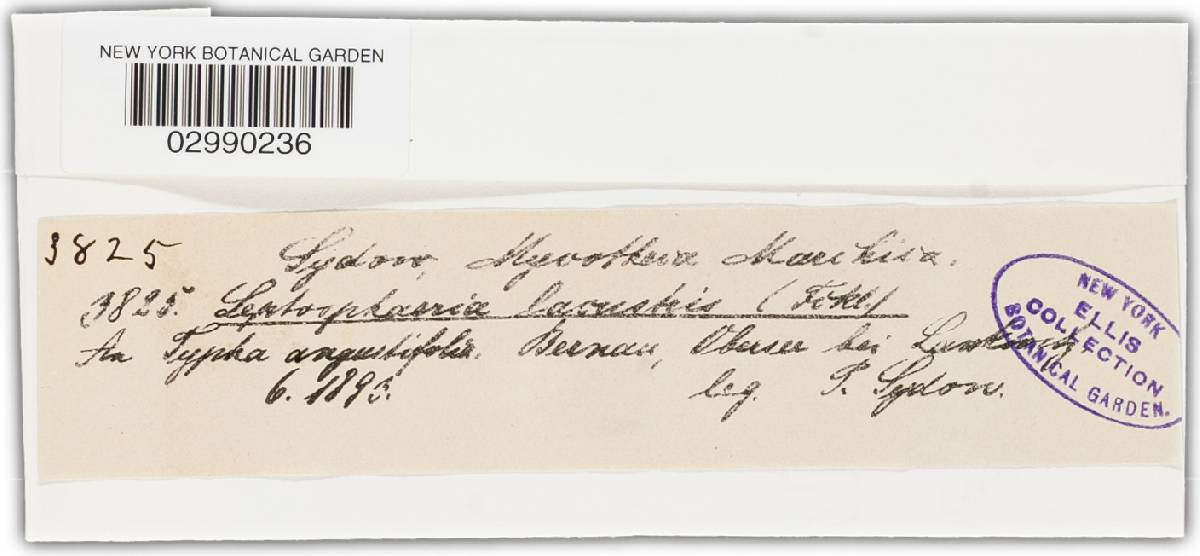 NEW YORK BOTANICAL GARDEN
02990236
3825
Sydow, Mycotheca Marchica.
3825. Leptosphaeria lacustris (Fckl)
An Typha angustifolia. Bernau, Obersee bei
6. 1893. leg. P. Sydow.
NEW YORK
ELLIS
COLLECTION
BOTANICAL GARDEN.